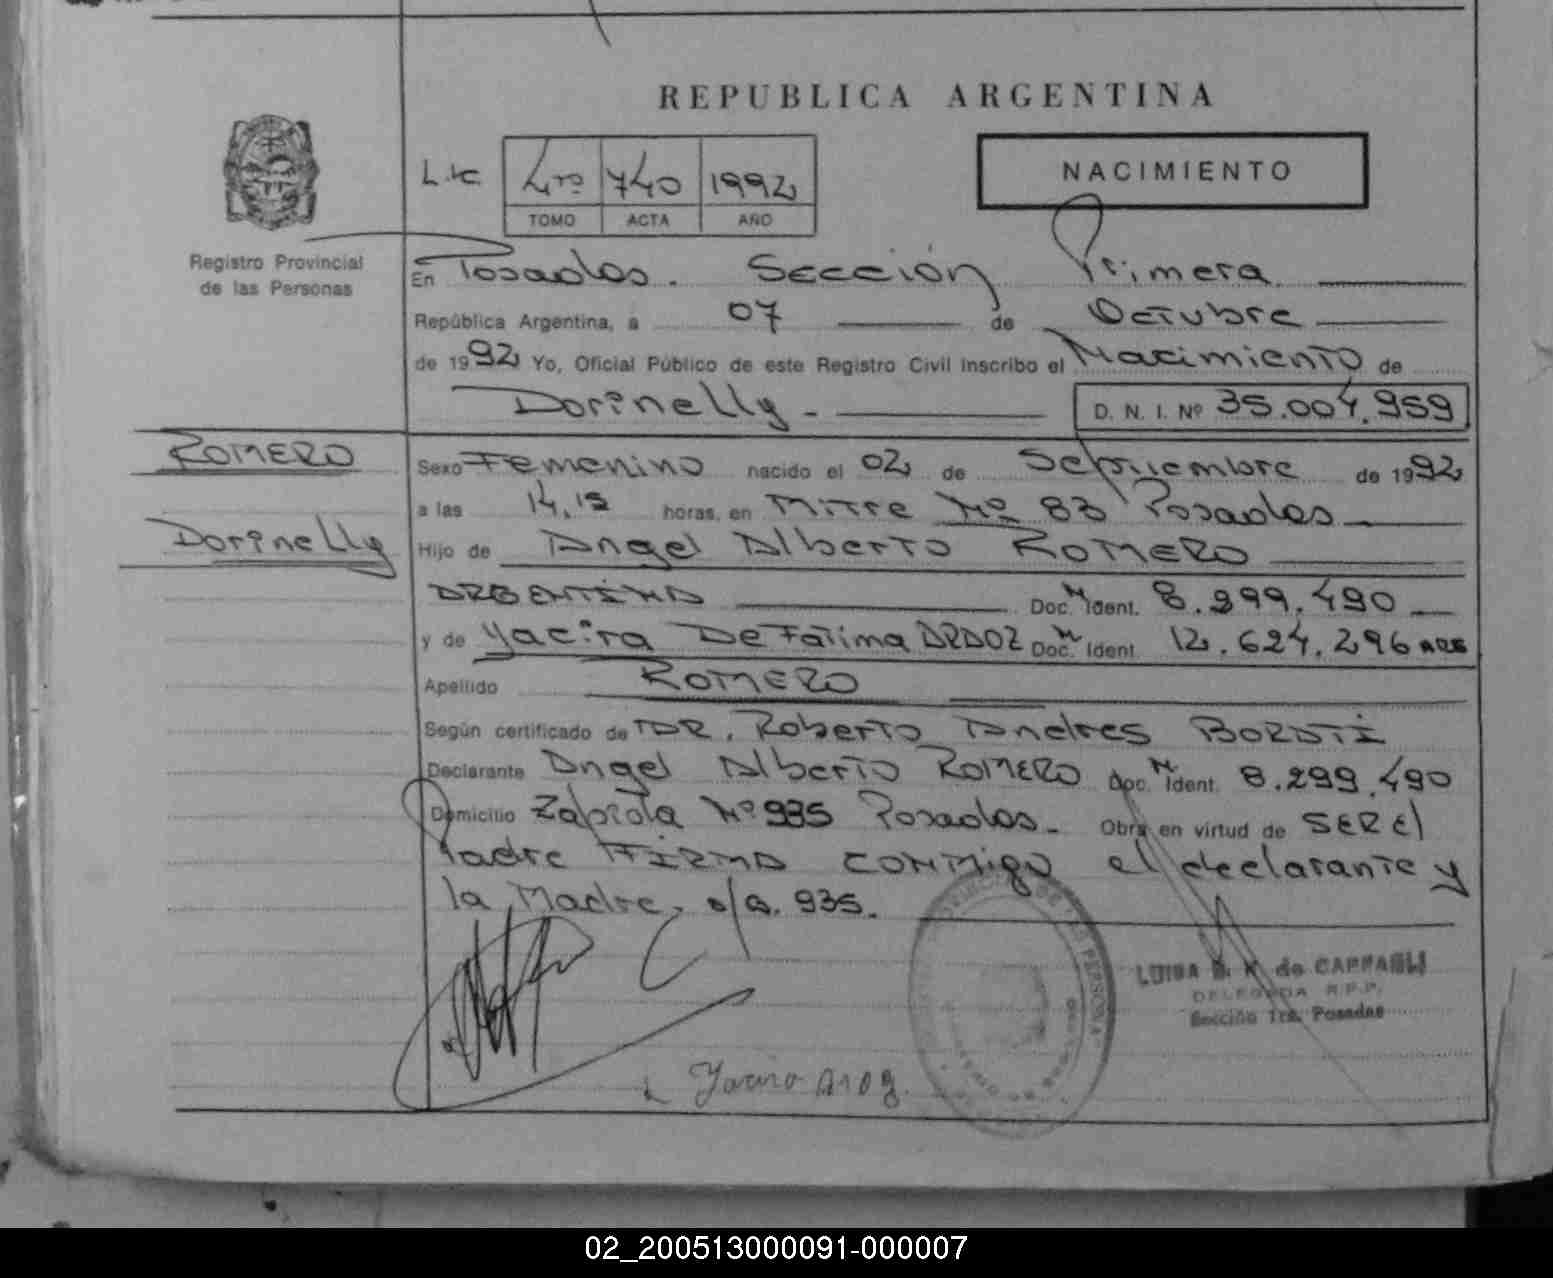 REPUBLICA ARGENTINA
NACIMIENTO
4to 740 1992
TOMO ACTA AÑO
Registro Provincial
de las Personas
En Posadas. Sección Primera
República Argentina, a 07 de Octubre
de 1992 Yo, Oficial Público de este Registro Civil inscribo el Nacimiento de
Dorinelly - D. N. I. Nº 35.004.959
ROMERO
Sexo Femenino nacido el 02 de Septiembre de 1992
a las 14,15 horas, en Mitre Nº 83 Posadas
Dorinelly
Hijo de Angel Alberto ROMERO
ARGENTINA Doc. M Ident. 8.299.490
y de Yacira De Fatima AROZ Doc. M Ident. 12.624.296
Apellido ROMERO
Según certificado de DR. Roberto Andres BORATI
Declarante Angel Alberto ROMERO Doc. M Ident. 8.299.490
Domicilio Zapiola Nº 935 Posadas - Obra en virtud de SER el
Padre FIRMA CONMigo el declarante y
la Madre. s/a. 935.
LUISA de
DELEGADA R.P.P.
Sección 1ra. Posadas
02_200513000091-000007